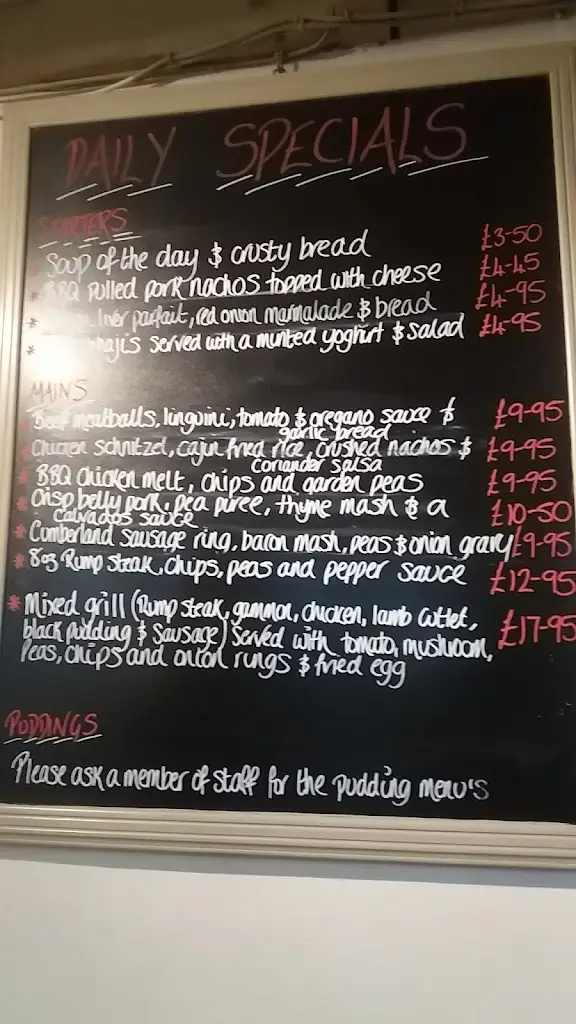 DAILY SPECIALS
STARTERS
Soup of the day & crusty bread £3-50
* BBQ Pulled pork nachos topped with cheese £4-45
* liver parfait, red onion marmalade & bread £4-95
* served with a minted yoghurt & salad £4-95
MAINS
* Beef meatballs, linguini, tomato & oregano sauce & £9-95
garlic bread
* Chicken schnitzel, cajun fried rice, crushed nachos & £9-95
coriander salsa
* BBQ Chicken melt, chips and garden peas £9-95
* Crisp belly pork, pea puree, thyme mash & a £10-50
calvados sauce
* Cumberland sausage ring, bacon mash, peas & onion gravy £9-95
* 8oz Rump steak, chips, peas and pepper sauce £12-95
* Mixed grill (Rump steak, gammon, chicken, lamb cutlet, £17-95
black pudding & sausage) served with tomato, mushroom,
Peas, chips and onion rings & fried egg
PUDDINGS
Please ask a member of staff for the pudding menu's